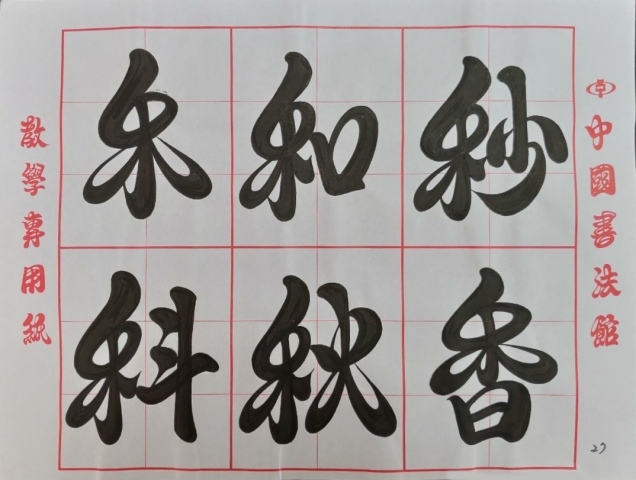 禾和秒
科秋香
中國書法館
教學專用紙
27